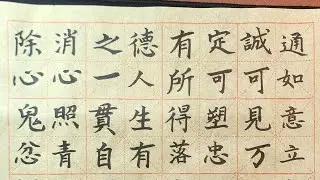 通如意立
誠可見万
定可塑忠
有所得落
德人生有
之一貫自
消心照青
除心鬼忿